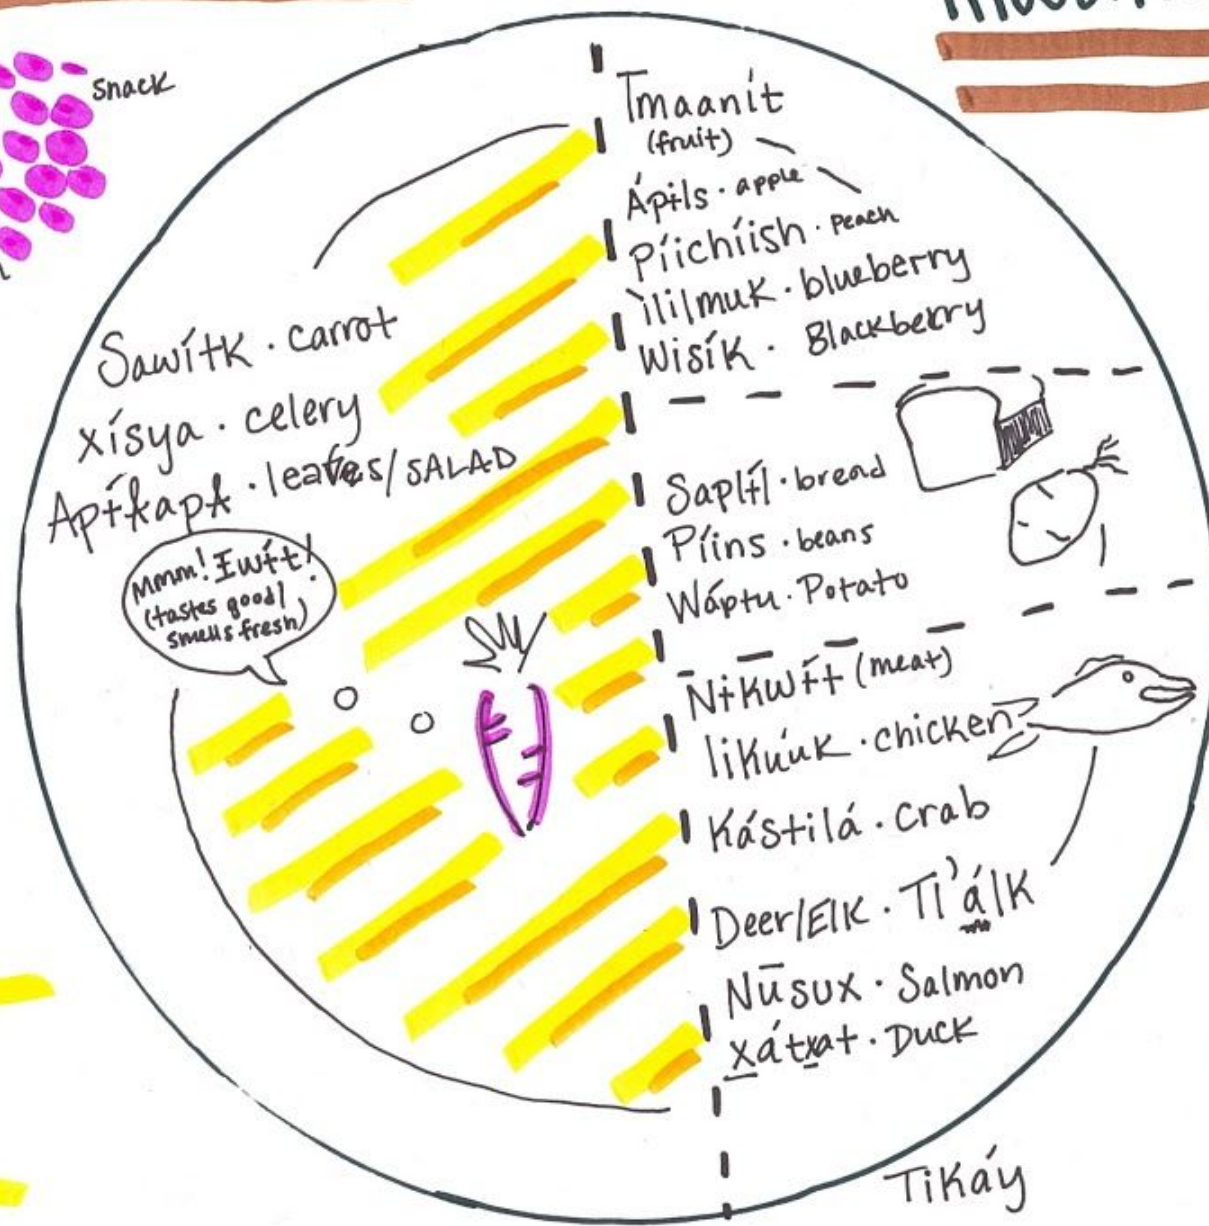 snack
Tmaanít
(fruit)
Ápɨls · apple
Píichíish · Peach
ìlilmuk · blueberry
Wisík · Blackberry
Sawítk · carrot
xísya · celery
Apɨ́kapɨ · leaves/SALAD
Mmm! Iwɨ́t!
(tastes good/
smells fresh)
Saplɨ́l · bread
Píins · beans
Wáptu · Potato
Nɨkwɨ́t (meat)
likúuk · chicken
Kástilá · Crab
Deer/Elk · Tl'álk
Nūsux · Salmon
x̲átx̲at · Duck
Tikáy